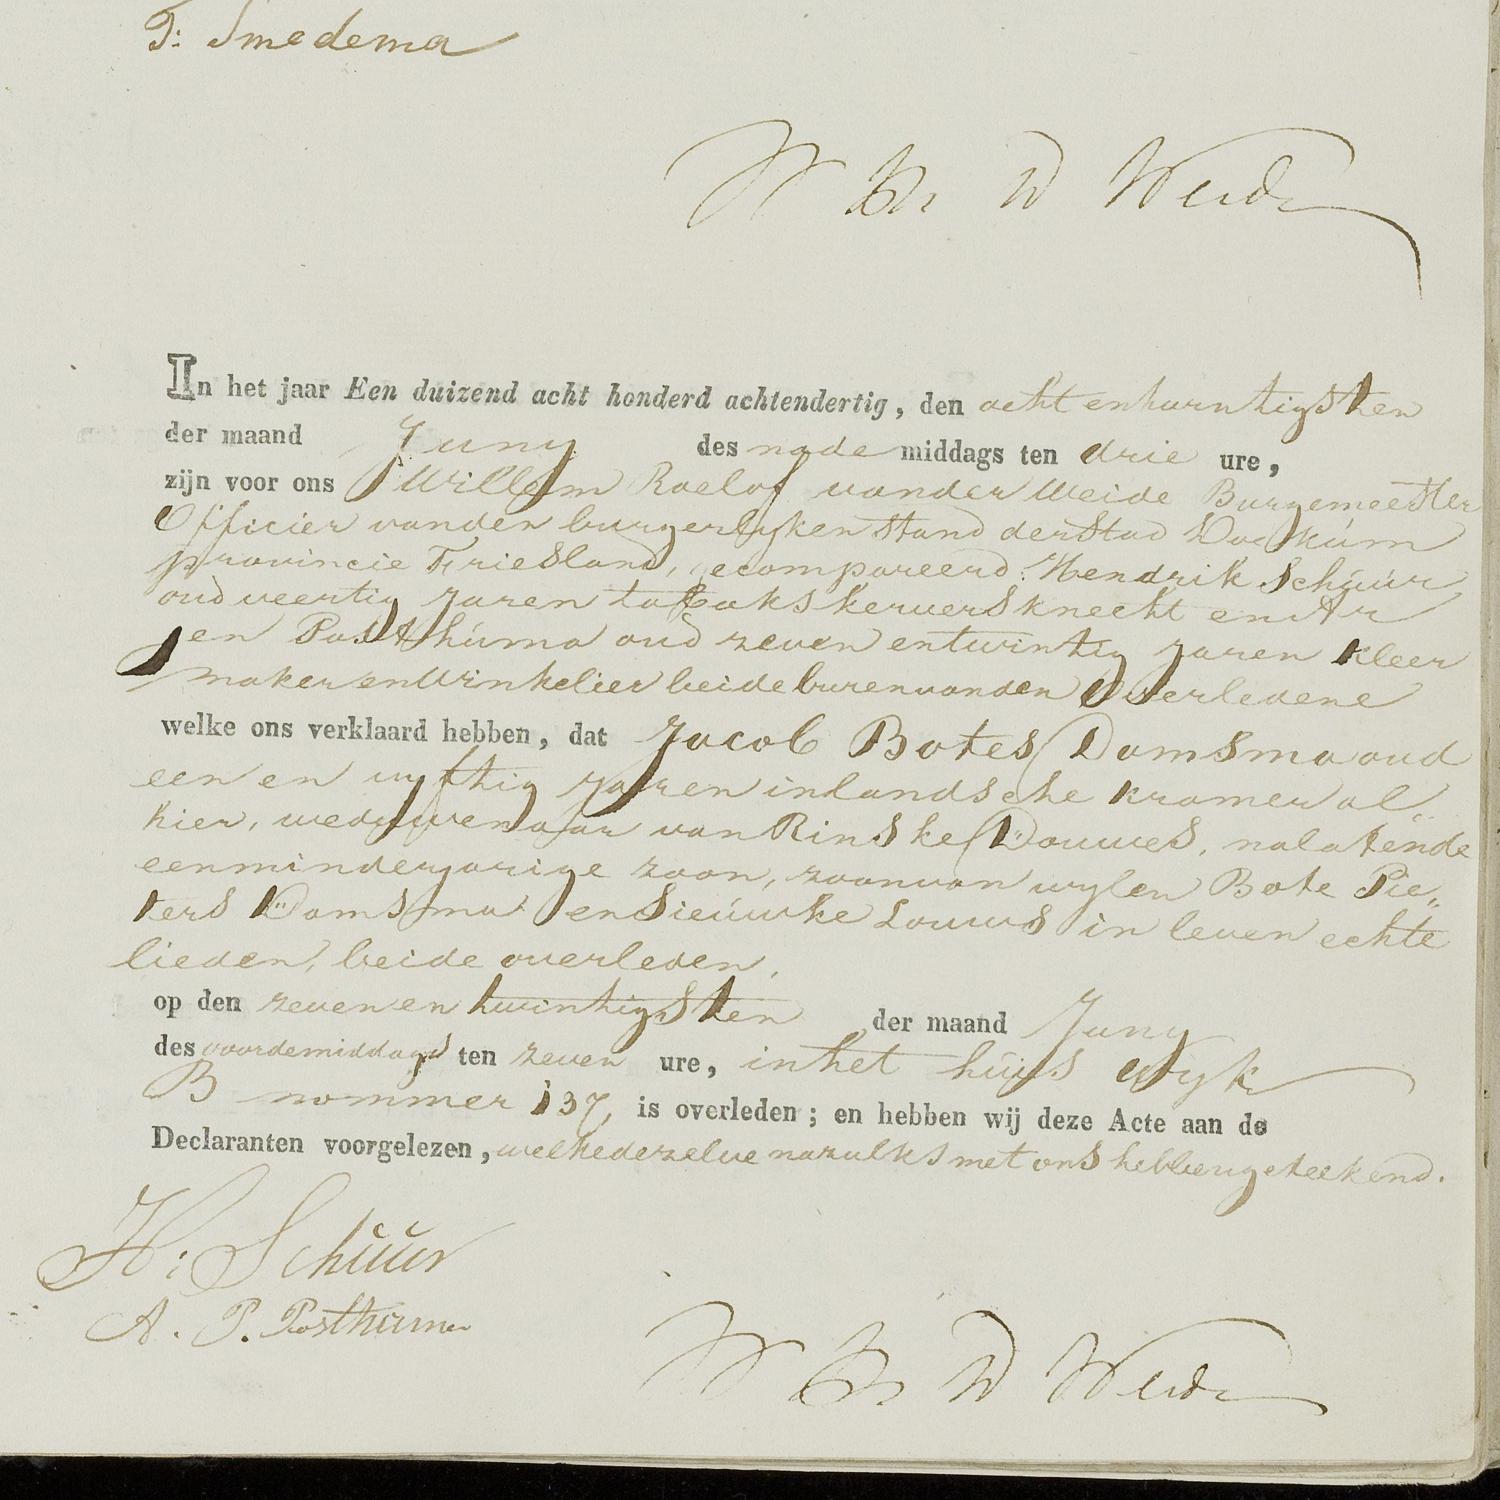 T: Smedema
W R v d Weide
In het jaar Een duizend acht honderd achtendertig, den acht en twintigsten
der maand Juny des nade middags ten drie ure,
zijn voor ons Willem Roelof vander Weide Burgemeester
Officier vanden burgerlyken stand der Stad Dockúm
provincie Friesland, gecompareerd: Hendrik Schúúr
oud veertig jaren tabakskerversknecht en Ar
jen Posthúma oud zeven entwintig jaren kleer
maker enwinkelier beide buren vanden Overledene
welke ons verklaard hebben, dat Jacob Botes Damsma oud
een en vyftig jaren inlandsche kramer al„
hier, weduwenaar van Rinske Douwes, nalatende
een minderjarige zoon, zoon van wylen Bote Pie„
ters Damsma en Sieúwke Louws in leven echte
lieden, beide overleden,
op den zeven en twintigsten der maand Juny
des voordemiddags ten zeven ure, in het huis Wyk
B nommer 137, is overleden; en hebben wij deze Acte aan de
Declaranten voorgelezen, welke dezelve nazulks met ons hebben geteekend.
H: Schúúr
A. P. Posthuma
W R v d Weide